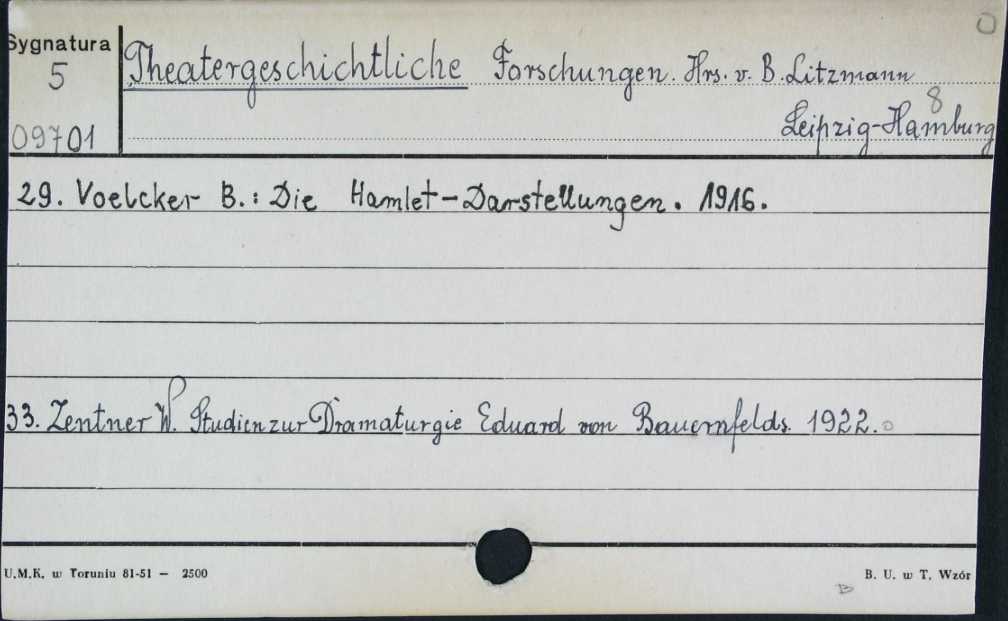 Sygnatura
5
09701
Theatergeschichtliche Forschungen. Hrs. v. B. Litzmann
8
Leipzig-Hamburg
29. Voelcker B.: Die Hamlet-Darstellungen. 1916.
33. Zentner W. Studien zur Dramaturgie Eduard von Bauernfelds. 1922.
U.M.K. w Toruniu 81-51 — 2500
B. U. w T. Wzór
B